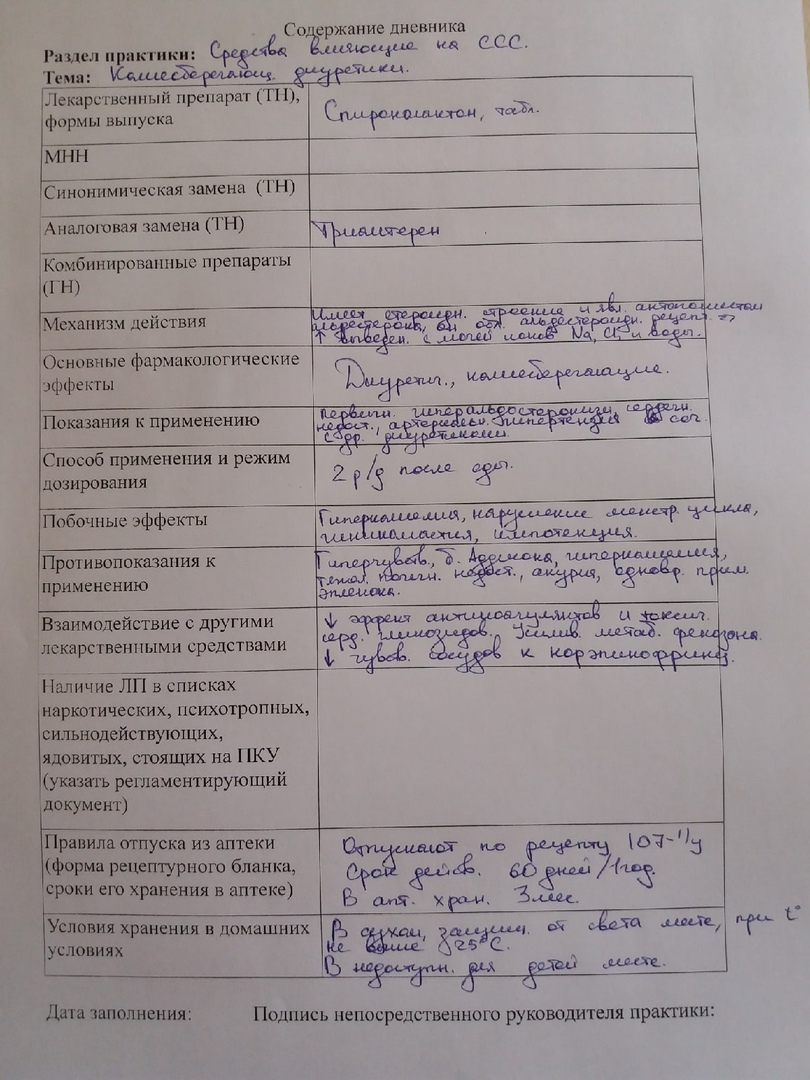 Содержание дневника
Раздел практики: Средства влияющие на ССС.
Тема: Калиесберегающ. диуретики.
Лекарственный препарат (ТН),
формы выпуска
Спиронолактон, табл.
МНН
Синонимическая замена (ТН)
Аналоговая замена (ТН)
Триамтерен
Комбинированные препараты
(ТН)
Механизм действия
Имеет стероидн. строение и явл. антагонистом
альдостерона, он бл. альдостероидн. рецепт. =>
↑ выведен. с мочой ионов Na, Cl, и воды.
Основные фармакологические
эффекты
Диуретич., калиесберегающие.
Показания к применению
Первичн. гиперальдостеронизм, сердечн.
недост., артериальн. гипертензия в соч.
с др. диуретиками.
Способ применения и режим
дозирования
2 р/д после еды.
Побочные эффекты
Гиперкалиемия, нарушение менстр. цикла,
гинекомастия, импотенция.
Противопоказания к
применению
Гиперчувств., б. Аддисона, гиперкалиемия,
тяжел. почечн. недост., анурия, одновр. прим.
эпленона.
Взаимодействие с другими
лекарственными средствами
↓ эффект антикоагулянтов и токсич.
серд. гликозидов. Усилив. метаб. феназона.
↓ чувств. сосудов к норэпинефрину.
Наличие ЛП в списках
наркотических, психотропных,
сильнодействующих,
ядовитых, стоящих на ПКУ
(указать регламентирующий
документ)
Правила отпуска из аптеки
(форма рецептурного бланка,
сроки его хранения в аптеке)
Отпускают по рецепту 107-1/у
Срок дейсв. 60 дней/1год.
В апт. хран. 3 мес.
Условия хранения в домашних
условиях
В сухом, защищ. от света месте, при t°
не выше 25°C.
В недоступн. для детей месте.
Дата заполнения: Подпись непосредственного руководителя практики: